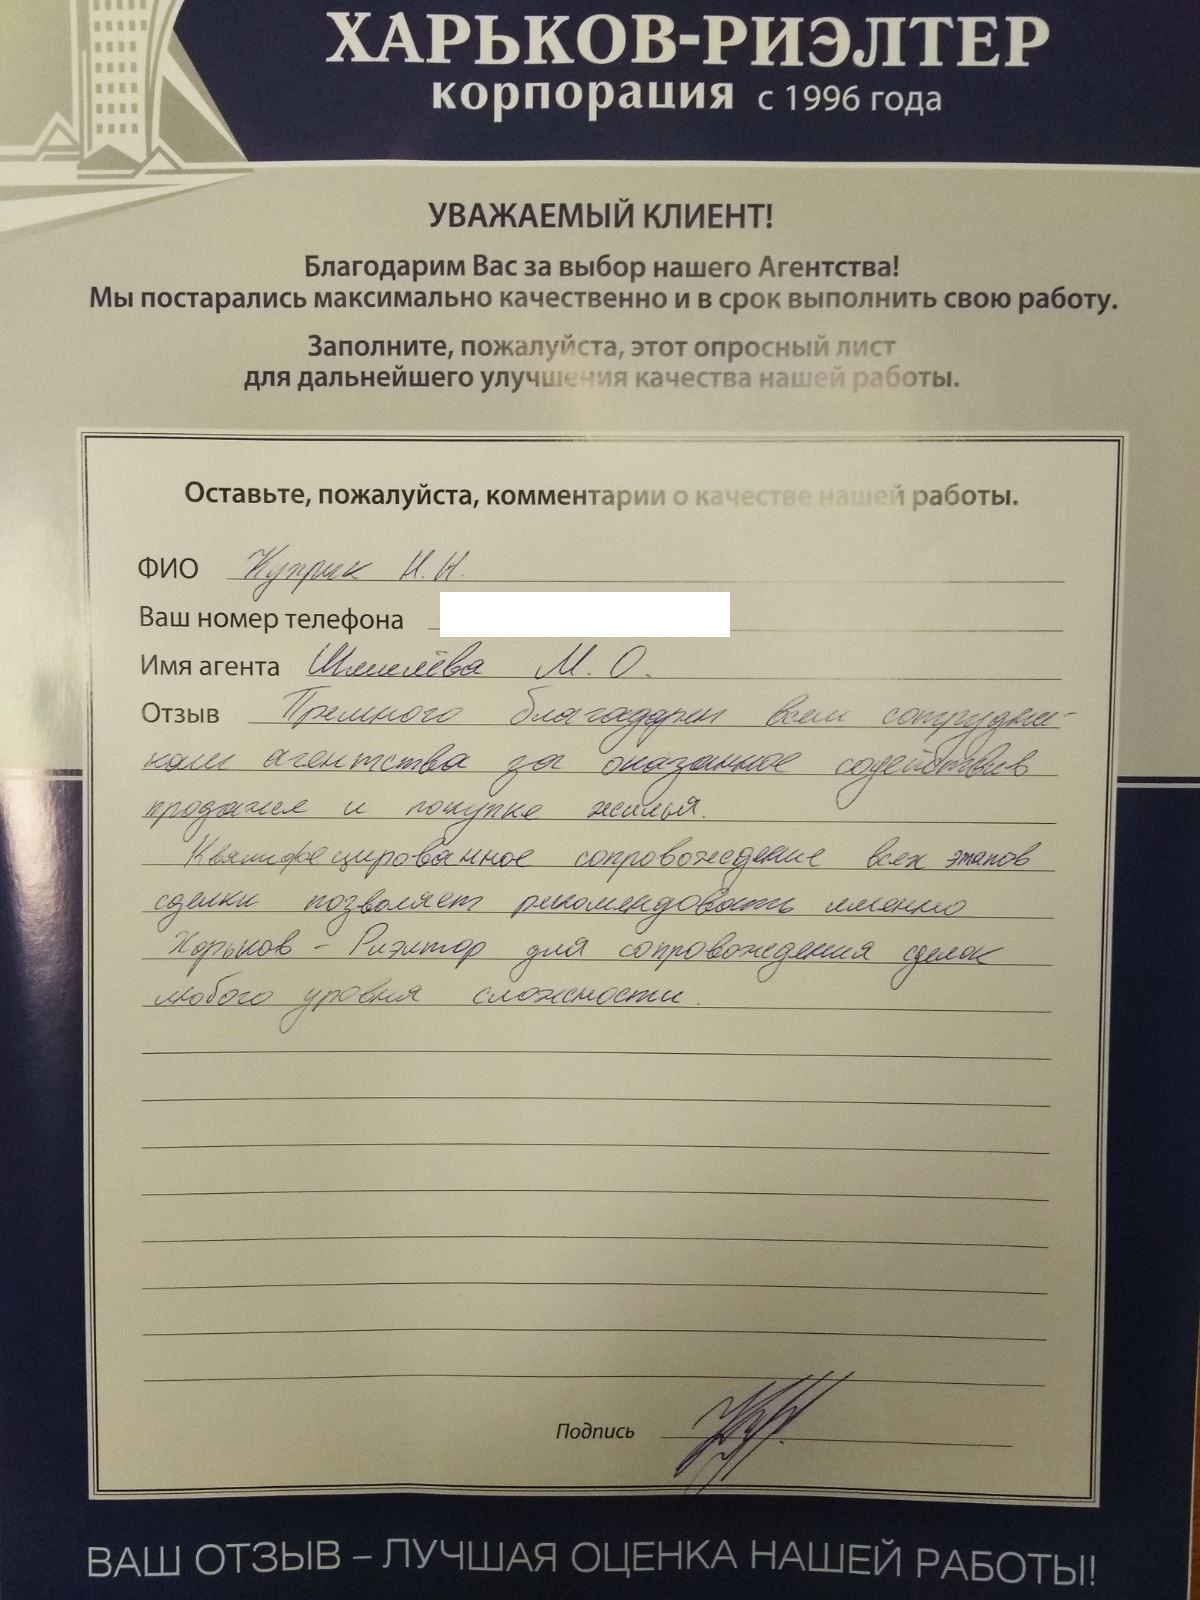 ХАРЬКОВ-РИЭЛТЕР
корпорация с 1996 года
УВАЖАЕМЫЙ КЛИЕНТ!
Благодарим Вас за выбор нашего Агентства!
Мы постарались максимально качественно и в срок выполнить свою работу.
Заполните, пожалуйста, этот опросный лист
для дальнейшего улучшения качества нашей работы.
Оставьте, пожалуйста, комментарии о качестве нашей работы.
ФИО Куприк Н.Н.
Ваш номер телефона
Имя агента Шмелёва М.О.
Отзыв Премного благодарен всем сотрудни-
кам агентства за оказанное содействие в
продаже и покупке жилья.
Квалифицированное сопровождение всех этапов
сделки позволяет рекомендовать именно
Харьков - Риэлтор для сопровождения сделок
любого уровня сложности.
Подпись
ВАШ ОТЗЫВ – ЛУЧШАЯ ОЦЕНКА НАШЕЙ РАБОТЫ!